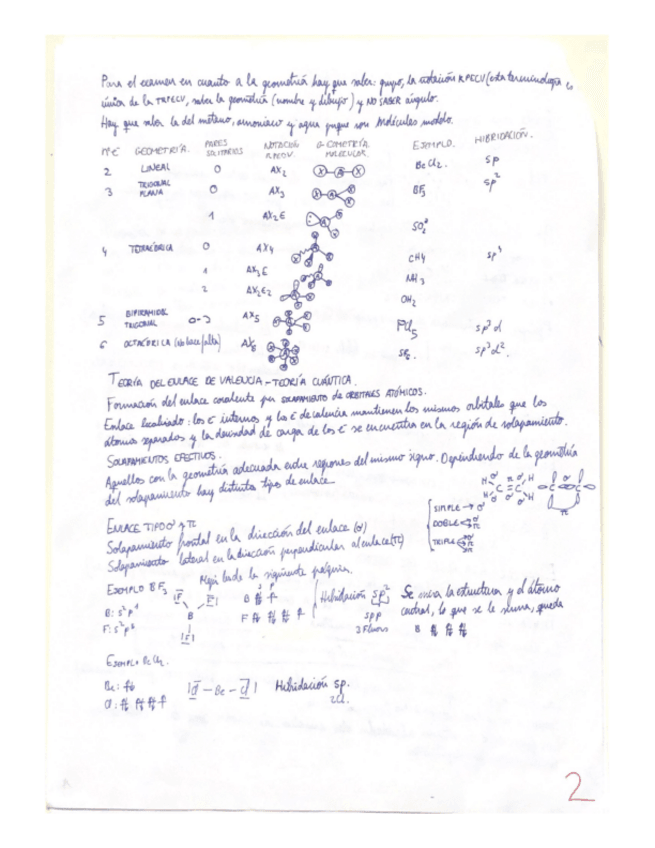 Para el examen en cuanto a la geometriá hay que saber: grupo, la notación RPECV (esta terminología es
única de la TRPECV, saber la geometriá (nombre y dibujo) y NO SABER ángulo.
Hay que saber la del metano, amoniaco y agua porque son Moléculas modelo.
Nºe⁻ GEOMETRÍA. PARES SOLITARIOS NOTACIÓN R.P.E.C.V. GEOMETRÍA MOLECULAR. EJEMPLO. HIBRIDACIÓN.
2 LINEAL 0 AX2 BeCl2. sp
3 TRIGONAL PLANA 0 AX3 BF3 sp²
1 AX2E SO2
4 TETRAÉDRICA 0 AX4 CH4
1 AX3E NH3
2 AX2E2 OH2
5 BIPIRAMIDE TRIGONAL AX5 PCl5 sp³d
6 OCTAÉDRICA AX6 SF6. sp³d².
TEORÍA DEL ENLACE DE VALENCIA - TEORÍA CUÁNTICA.
Formación del enlace covalente por SOLAPAMIENTO DE ORBITALES ATÓMICOS.
Enlace localizado: los e⁻ internos y los e⁻ de valencia mantienen los mismos orbitales que los
átomos separados y la densidad de carga de los e⁻ se encuentra en la región de solapamiento.
SOLAPAMIENTOS EFECTIVOS.
Aquellos con la geometria adecuada entre regiones del mismo signo. Dependiendo de la geometría
del solapamiento hay distintos tipos de enlace
SIMPLE → σ
DOBLE σ π
TRIPLE σ π π
ENLACE TIPO σ y π
Solapamiento frontal en la dirección del enlace (σ)
Solapamiento lateral en la dirección perpendicular al enlace (π)
la siguiente página.
EJEMPLO BF3
B: s²p¹
F: s²p⁵
B
F
Hibridación sp²
spp
3 Fluors
Se mira la estructura y el átomo
central, lo que se le suma, queda
B
EJEMPLO BeCl2.
Be:
Cl:
|Cl - Be - Cl|
Hibridación sp.
2Cl.
2